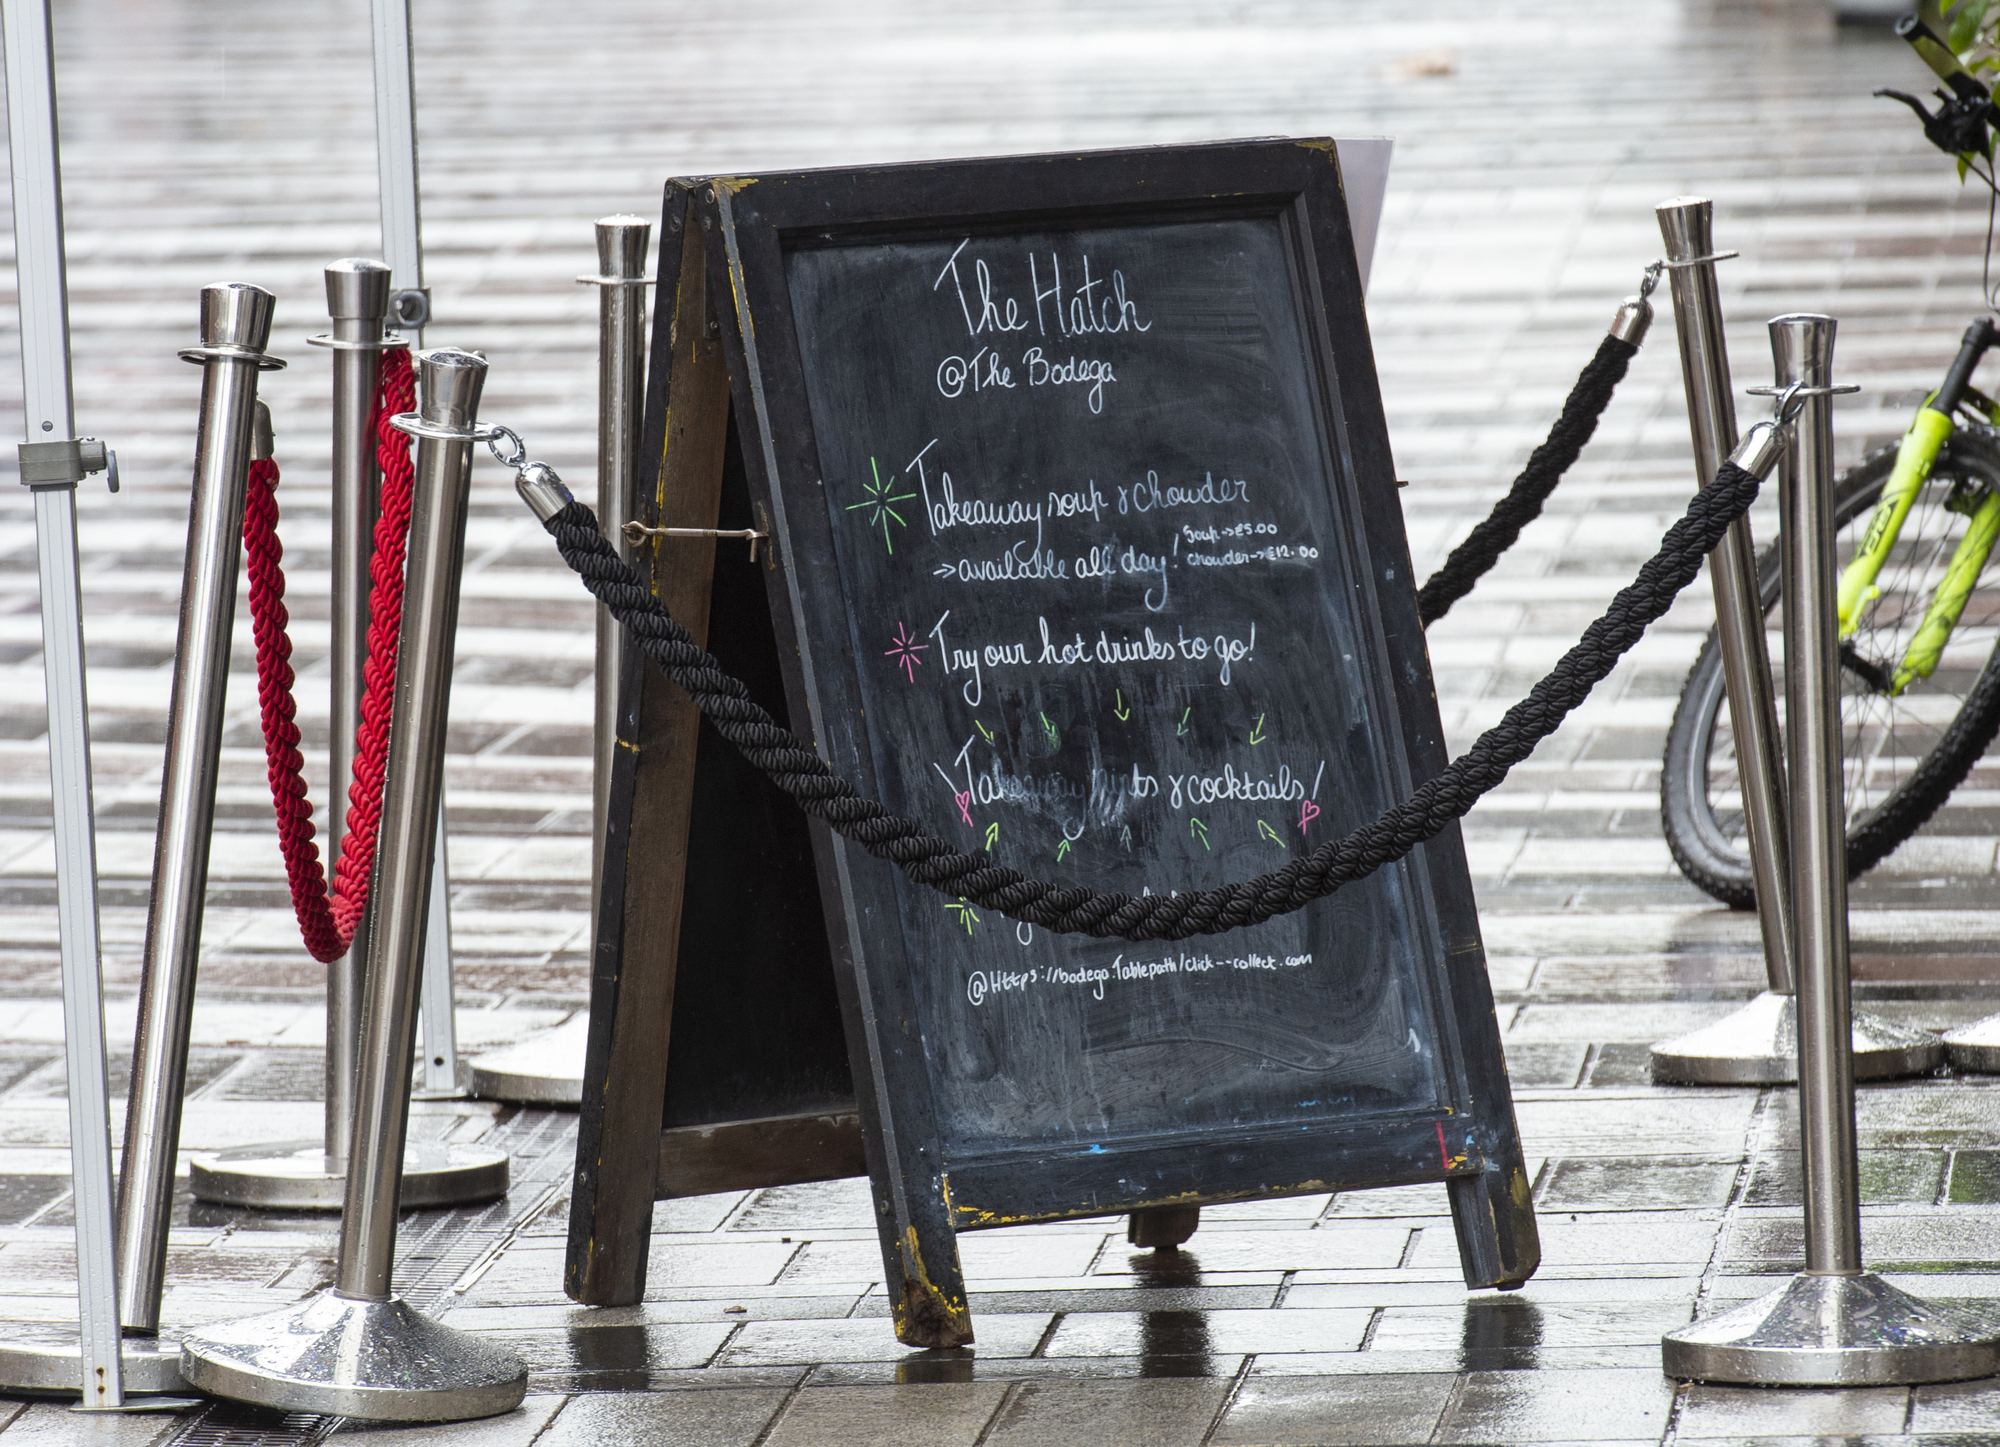 The Hatch
@The Bodega
Takeaway soup & chowder
→available all day!
Soup→€5.00
chowder→€12.00
Try our hot drinks to go!
\Takeaway pints & cocktails/
@Https://bodega.Tablepath/click--collect.com